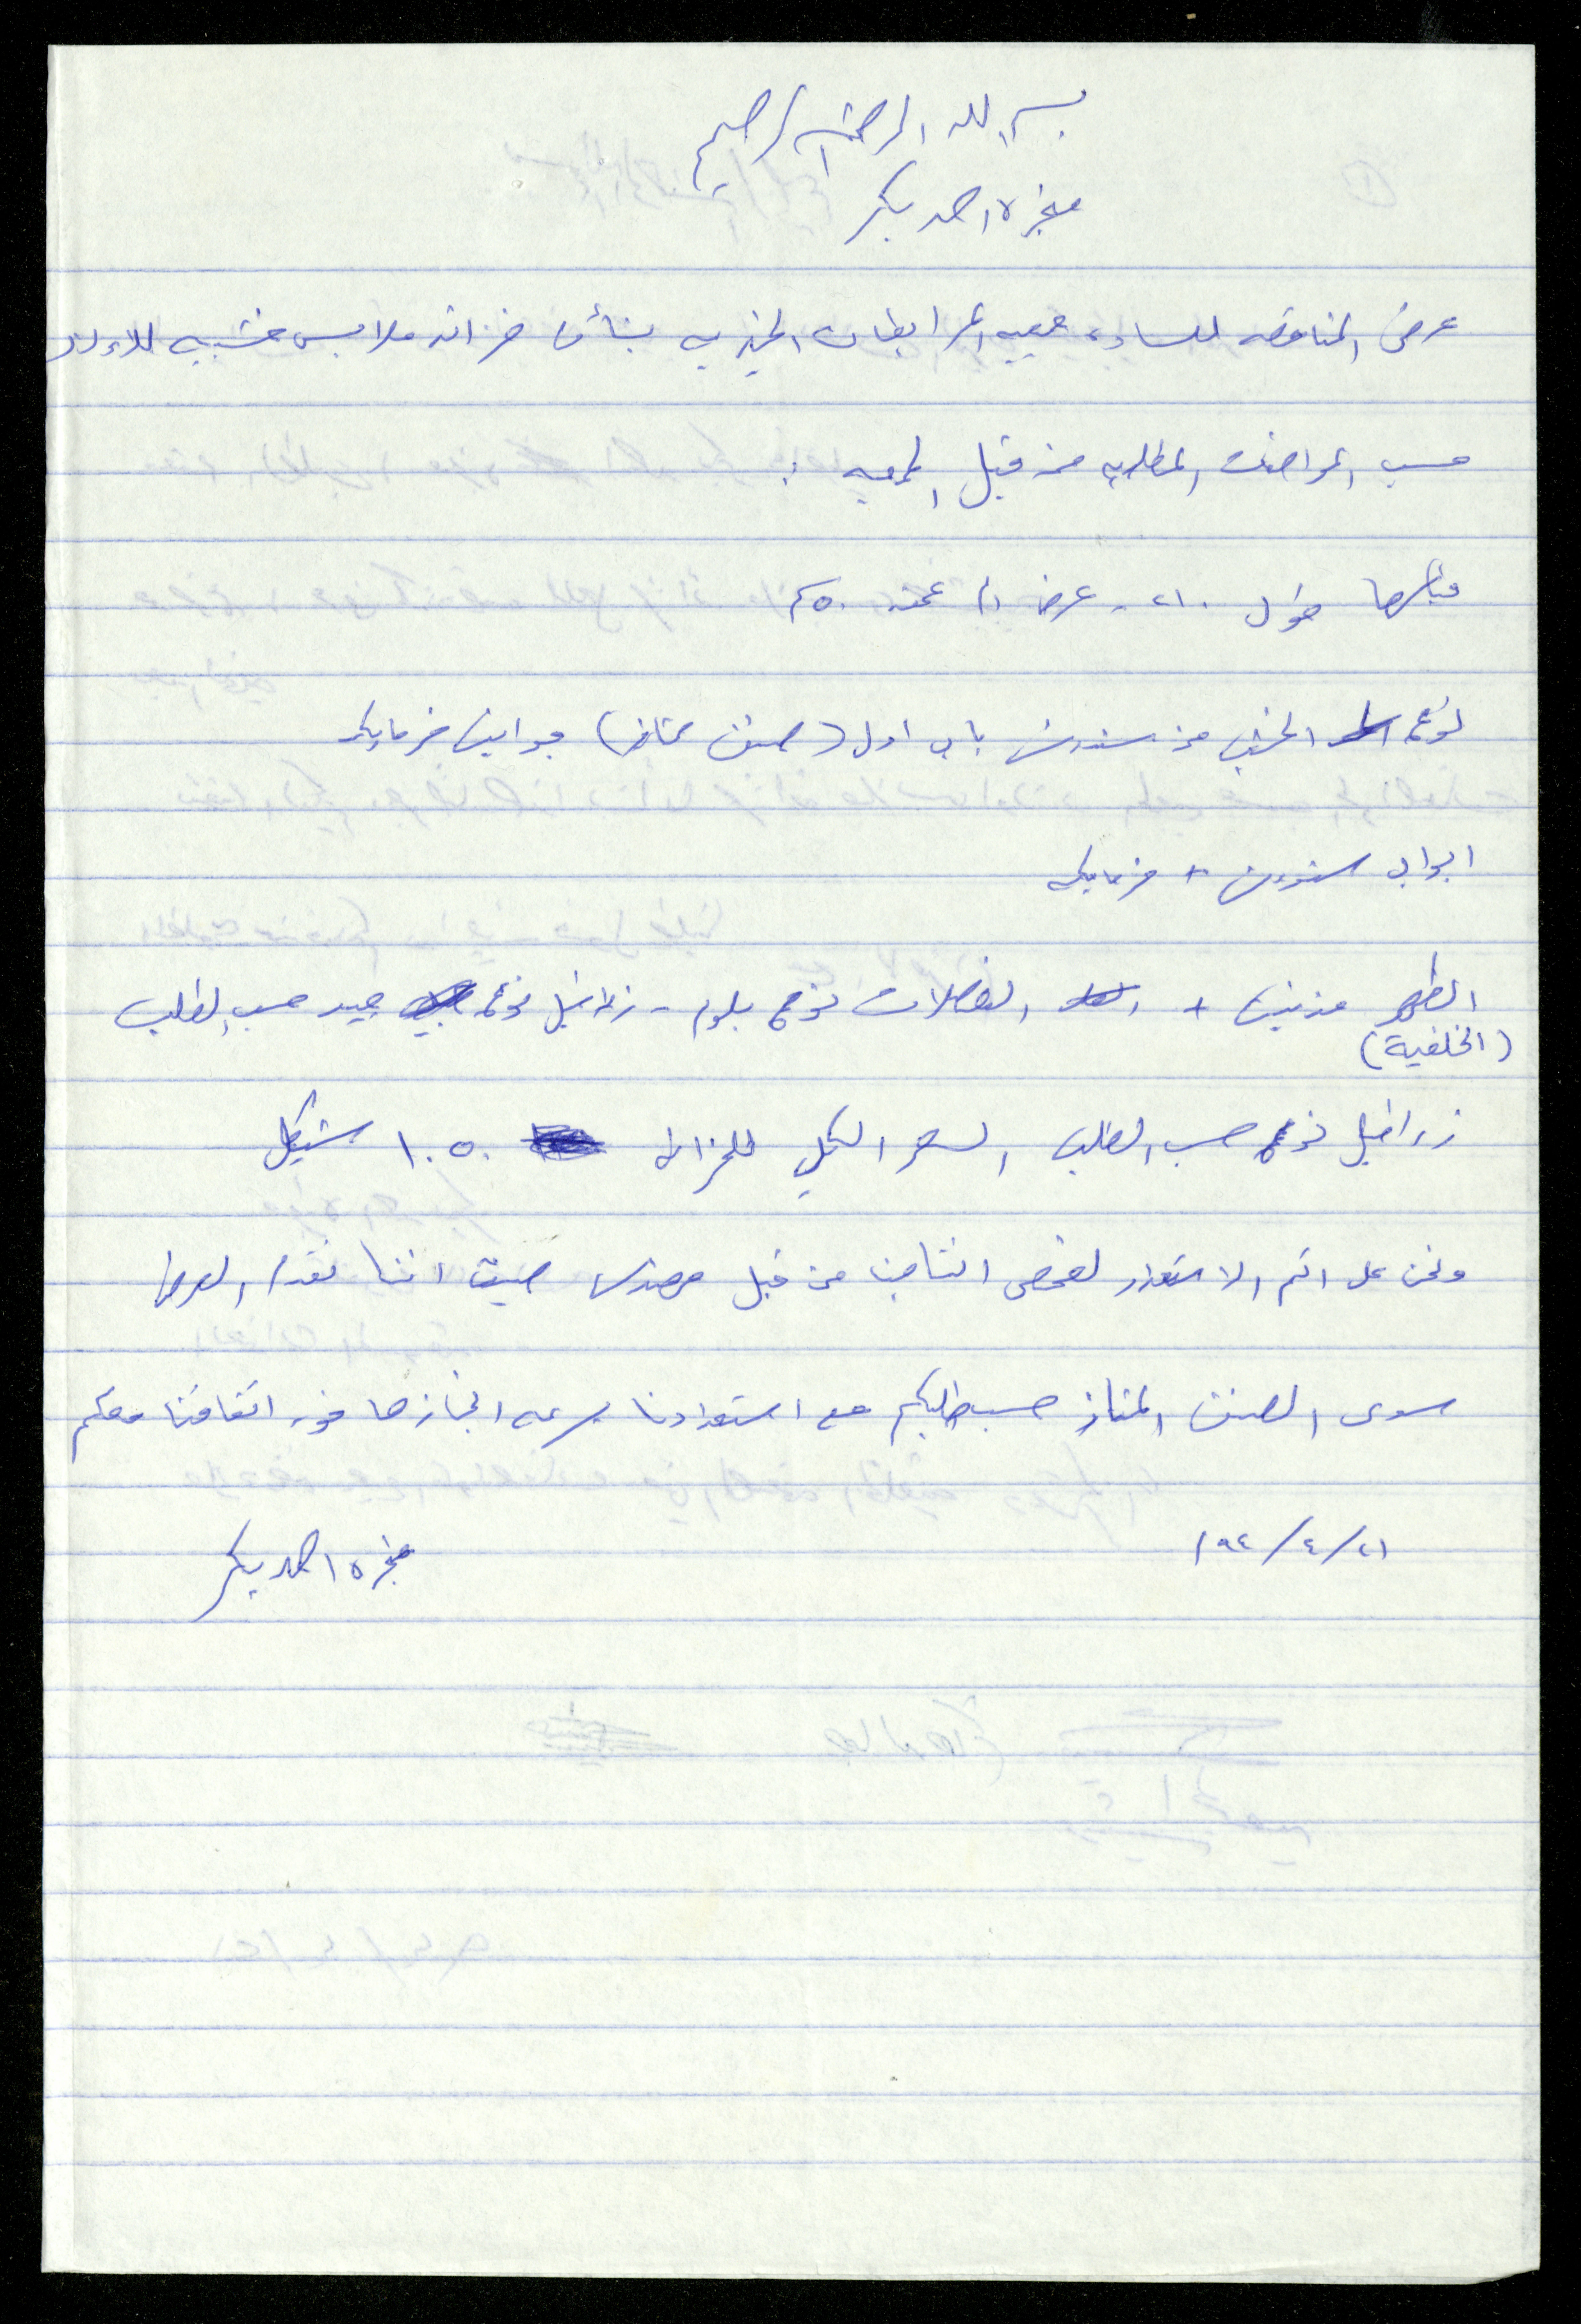 بسم الله الرحمن الرحيم
منجرة احمد بكر
عرض المناقصه للساده جمعيه المرابطات الخيريه بشأن خزانه ملابس خشبيه للاولاد
حسب المواصفات المطلوبه من قبل الجمعيه :
قياسها طول ٢١٠ - عرض عمق ٥٠ سم
نوع الخشب من سندوتش باب اول (صنف ممتاز) جوانب فرمايكه
ابواب سندوتش + فرمايكه
الظهر مدنيت + الفصلات نوع بلوم - زرافيل نوع جيد حسب الطلب
(الخلفية)
زرافيل نوع حسب الطلب السعر الكلي للخزانه ١٠٥٠ شيكل
ونحن على اتم الاستعداد لفحص انتاجنا من قبل مهندس حيث اننا لا نقدم العرض
سوى الصنف الممتاز حسب طلبكم مع استعدادنا بسرعه انجازها فور اتفاقنا معكم
٢١/٤/٩٤م
منجره احمد بكر